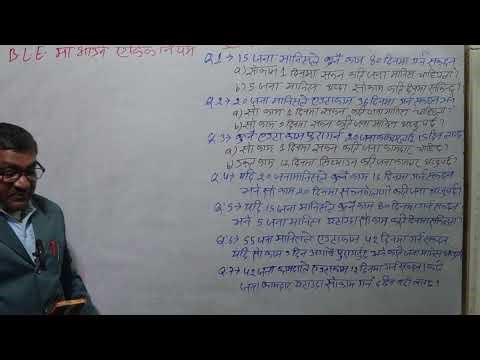 B.L.E. मा आउने ऐकिक नियम
Q.1→ 15 जना मानिसले कुनै काम 40 दिनमा गर्न सक्दछन
a) सो काम 1 दिनमा सक्न कति जना मानिस चाहिएला?
b) 5 जना मानिस थप्दा सो काम कति दिनमा सकिन्छ?
Q.2→ 20 जना मानिसले एउटा काम 36 दिनमा गर्न सक्दछन भने
a) सो काम 1 दिनमा सक्न कति जना मानिस चाहिएला?
b) सो काम दिनमा सक्न कति जना मानिस थप्नुपर्छ?
Q.3→ कुनै एउटा काम पूरा गर्न 20 जना कामदारलाई दिन लाग्छ
a) सो काम 1 दिनमा सक्न कति जना कामदार चाहिन्छ?
b) उक्त काम 12 दिनमा सिध्याउन कति जना कामदार थप्नुपर्छ?
Q.4→ यदि 20 जना मानिसले कुनै काम 15 दिनमा गर्न सक्दछन
भने सो काम 20 दिनमा सक्न कति जना
Q.5→ यदि 15 जना मानिसले कुनै काम 40 दिनमा गर्न सक्दछन
भने 5 जना मानिस घटाउदा सो काम कति दिनमा सकिन्छ?
Q.6→ 55 जना मानिसले एउटा काम 42 दिनमा गर्न सक्दछन
यदि सो काम दिन अगावै पूरा गर्नुपर्ने भए कति जना मानिस थप्नुपर्ला
Q.7→ 42 जना कामदारले एउटा काम 12 दिनमा गर्न सक्छन। कति
जना कामदार घटाउदा सो काम गर्न दिन बढी लाग्छ?